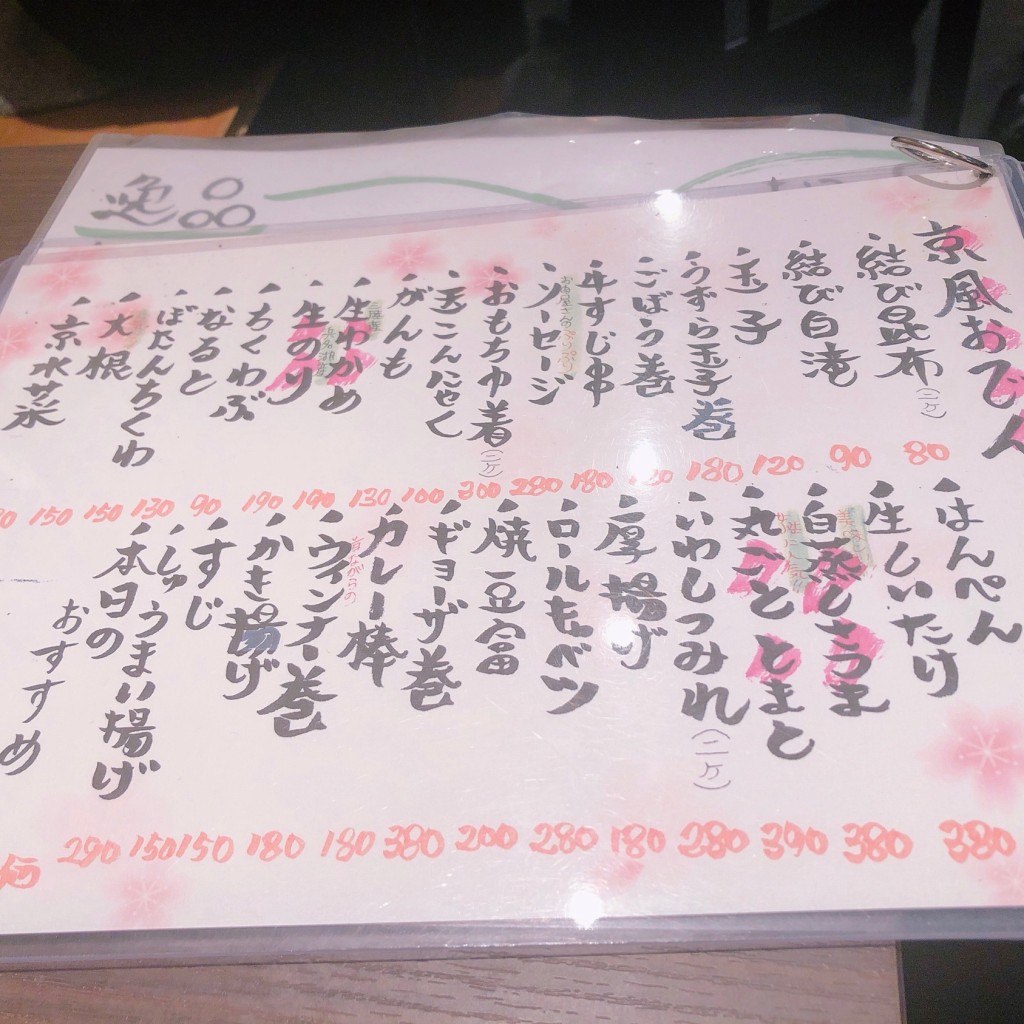 逸品
京風おでん
結び昆布(二ケ)
結び白滝
玉子
うずら玉子巻
ごぼう巻
牛すじ串
お肉屋さんの
ソーセージ
おもち巾着(二ケ)
玉こんにゃく
がんも
三陸産
生わかめ
浜名湖産
生のり
ちくわぶ
なると
ぼたんちくわ
大根
京水菜
80
90
120
180
180
280
300
100
130
190
190
90
130
150
150
はんぺん
生しいたけ
白蒸しさつま
丸ごととまと
いわしつみれ(二ケ)
厚揚げ
ロールキャベツ
焼豆富
ギョーザ巻
昔ながらの
カレー棒
ウィンナー巻
かき揚げ
すじ
しゅうまい揚げ
本日の
おすすめ
380
380
390
280
180
280
200
380
180
180
150
150
290